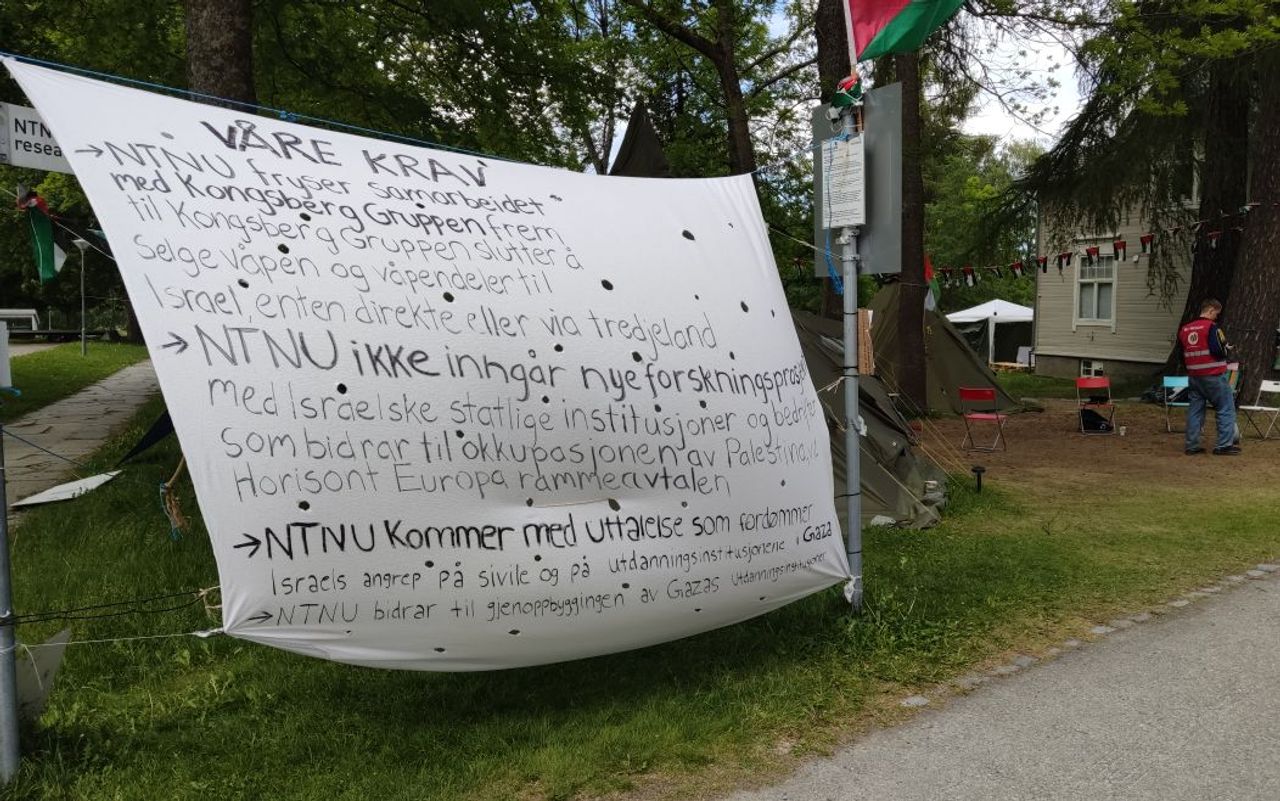 NTN
resea
VÅRE KRAV
→NTNU fryser samarbeidet
med Kongsberg Gruppen frem
til Kongsberg Gruppen slutter å
selge våpen og våpendeler til
Israel, enten direkte eller via tredjeland
→NTNU ikke inngår nye forskningsprosj
med Israelske statlige institusjoner og bedrift
som bidrar til okkupasjonen av Palestina, vi
Horisont Europa rammeavtalen
→NTNU Kommer med uttalelse som fordømmer
Israels angrep på sivile og på utdanningsinstitusjonene i Gaza
→NTNU bidrar til gjenoppbyggingen av Gazas utdanningsinstitusjoner